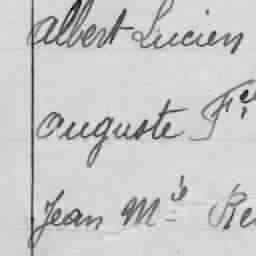 Albert Lucien
Auguste F
Jean Mie